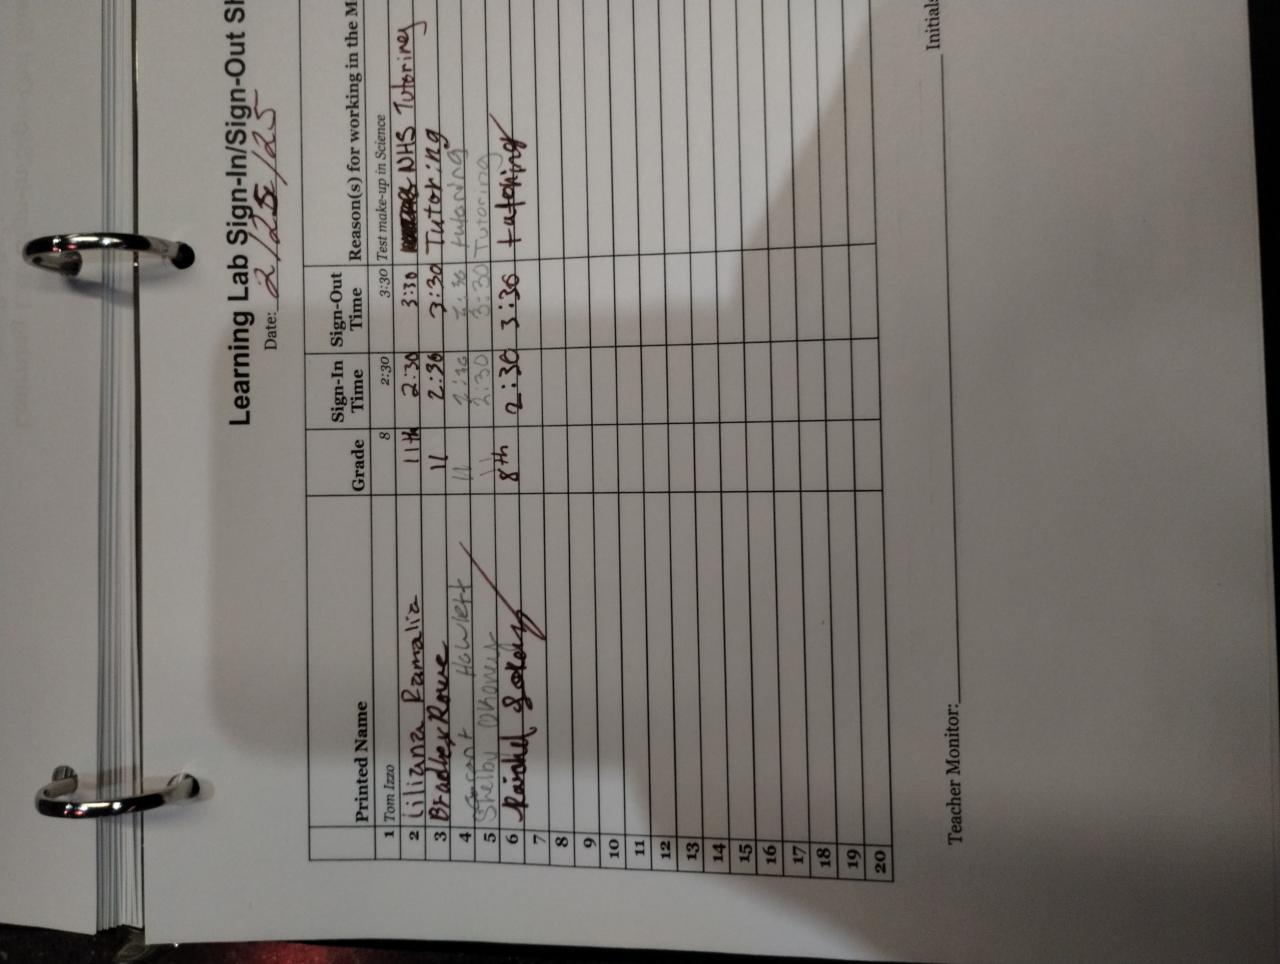 Learning Lab Sign-In/Sign-Out Sh
Date: 2/25/25
Printed Name Grade Sign-In Time Sign-Out Time Reason(s) for working in the M
1 Tom Izzo 8 2:30 3:30 Test make-up in Science
2 Liliana Ramalia 11th 2:30 3:30 NHS Tutoring
3 Bradley Rowe 11 2:30 3:30 Tutoring
4 Howlett 11 tutoring
5 Shelby 11 2:30 3:30 Tutoring
6 8th 2:30 3:30 tutoring
7
8
9
10
11
12
13
14
15
16
17
18
19
20
Teacher Monitor: Initials